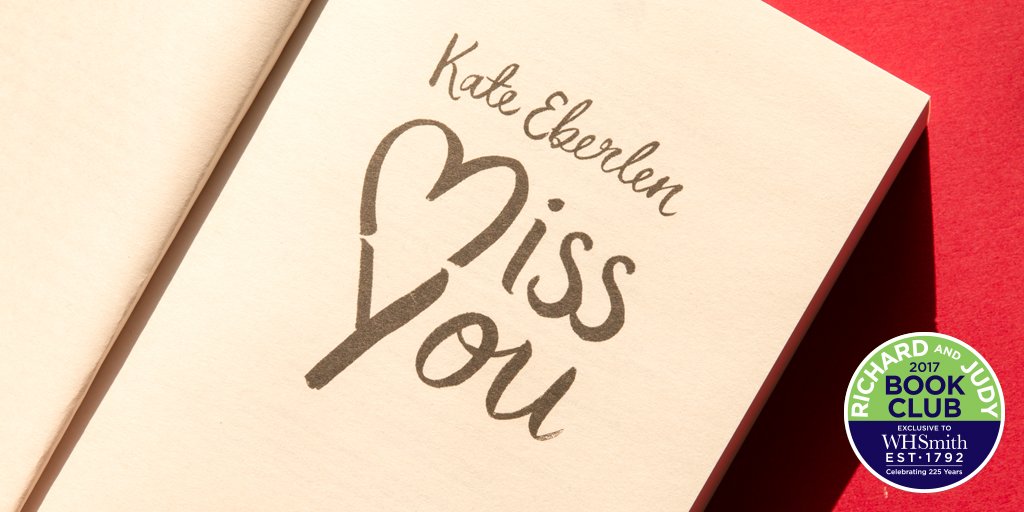 Kate Eberlen
Miss
You
RICHARD AND JUDY
2017
BOOK
CLUB
EXCLUSIVE TO
WHSmith
EST•1792
Celebrating 225 Years